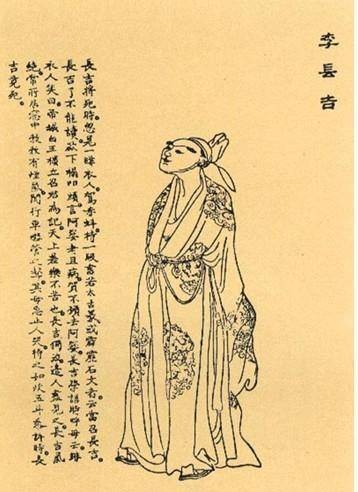 李長吉
長吉將死時。忽見一緋衣人。駕赤虯。持一版。書若太古篆或霹靂石文者。云當召長吉。
長吉了不能讀。欻下榻叩頭。言阿㜷老且病。賀不願去。阿㜷。長吉學語時呼母云。緋
衣人笑曰。帝成白玉樓。立召君為記。天上差樂不苦也。長吉獨泣。邊人盡見之。長吉氣
絕。常所居窗中。勃勃有煙氣。聞行車嘒管之聲。其母急止人哭。待之如炊五斗黍許時。長
吉竟死。